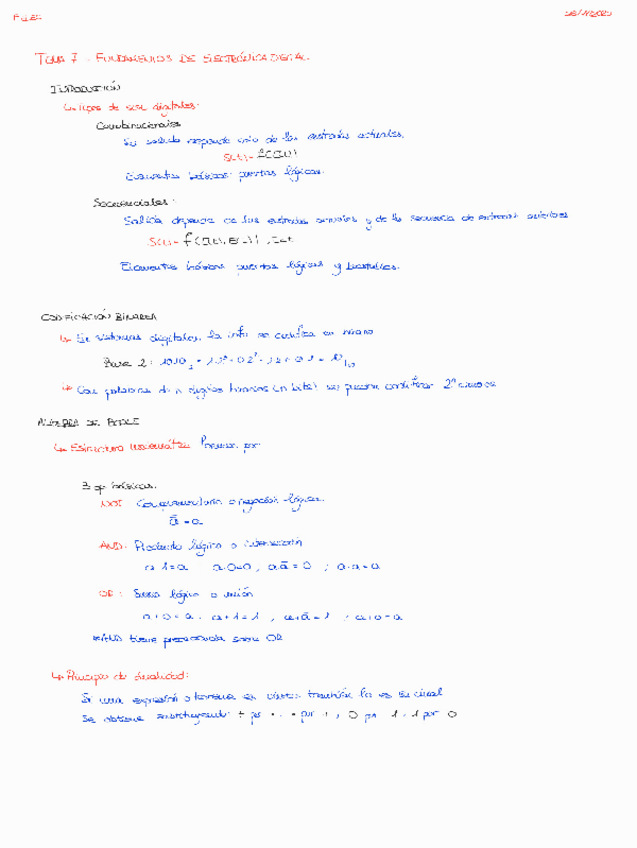 TEMA 7 - FUNDAMENTOS DE ELECTRÓNICA DIGITAL
INTRODUCCIÓN
↳ Tipos de sist. digitales:
Combinacionales
Su salida responde solo de las entradas actuales.
Elementos básicos: puertas lógicas.
Secuenciales:
Salida depende de las entradas actuales y de la secuencia de entradas anteriores
Elementos básicos puertas lógicas y biestables.
CODIFICACIÓN BINARIA
↳ En sistemas digitales, la info se codifica en binario
Base 2: 1010₂
↳ Con palabras de n dígitos binarios (n bits) se pueden codificar 2ⁿ
ÁLGEBRA DE BOOLE
↳ Estructura matemática Formada por:
3 op. básicas:
NOT: Complementación o negación lógica.
AND: Producto lógico o intersección
a·1=a a·0=0, a·ā=0 ; a·a=a
OR: Suma lógica o unión
a+0=a, a+1=1, a+ā=1
*AND tiene precedencia sobre OR
↳ Principio de dualidad:
Si una expresión o teorema es cierto también lo es su dual
Se obtiene intercambiando: + por ·, · por +, 0 por 1, 1 por 0